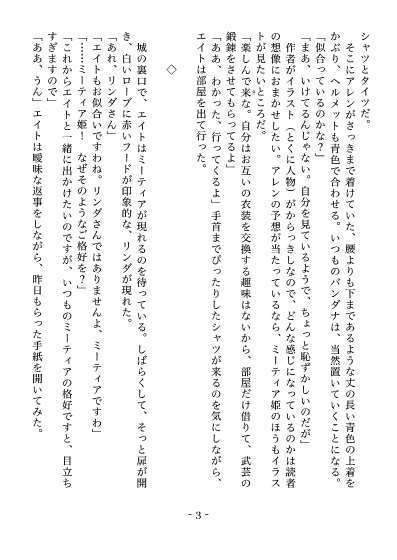 シャツとタイツだ。
　そこにアレンがさっきまで着けていた、腰よりも下まであるような丈の長い青色の上着を
かぶり、ヘルメットも青色で合わせる。いつものバンダナは、当然置いていくことになる。
「似合っているのかな？」
「まあ、いけてるんじゃない。自分を見ているようで、ちょっと恥ずかしいのだが」
　作者がイラスト（とくに人物）がからっきしなので、どんな感じになっているのかは読者
の想像におまかせしたい。アレンの予想が当たっているなら、ミーティア姫のほうもイラス
トが見たいところだ。
「楽しんで来な。自分はお互いの衣装を交換する趣味はないから、部屋だけ借りて、武芸の
鍛錬をさせてもらってるよ」
「ああ、わかった、行ってくるよ」手首までぴったりしたシャツが来るのを気にしながら、
エイトは部屋を出て行った。
◇
　城の裏口で、エイトはミーティアが現れるのを待っている。しばらくして、そっと扉が開
き、白いローブに赤いフードが印象的な、リンダが現れた。
「あれ、リンダさん」
「エイトもお似合いですわね。リンダさんではありませんよ、ミーティアですわ」
「……ミーティア姫！　なぜそのようなご格好を？」
「これからエイトと一緒に出かけたいのですが、いつものミーティアの格好ですと、目立ち
すぎますので」
「ああ、うん」エイトは曖昧な返事をしながら、昨日もらった手紙を開いてみた。
- 3 -